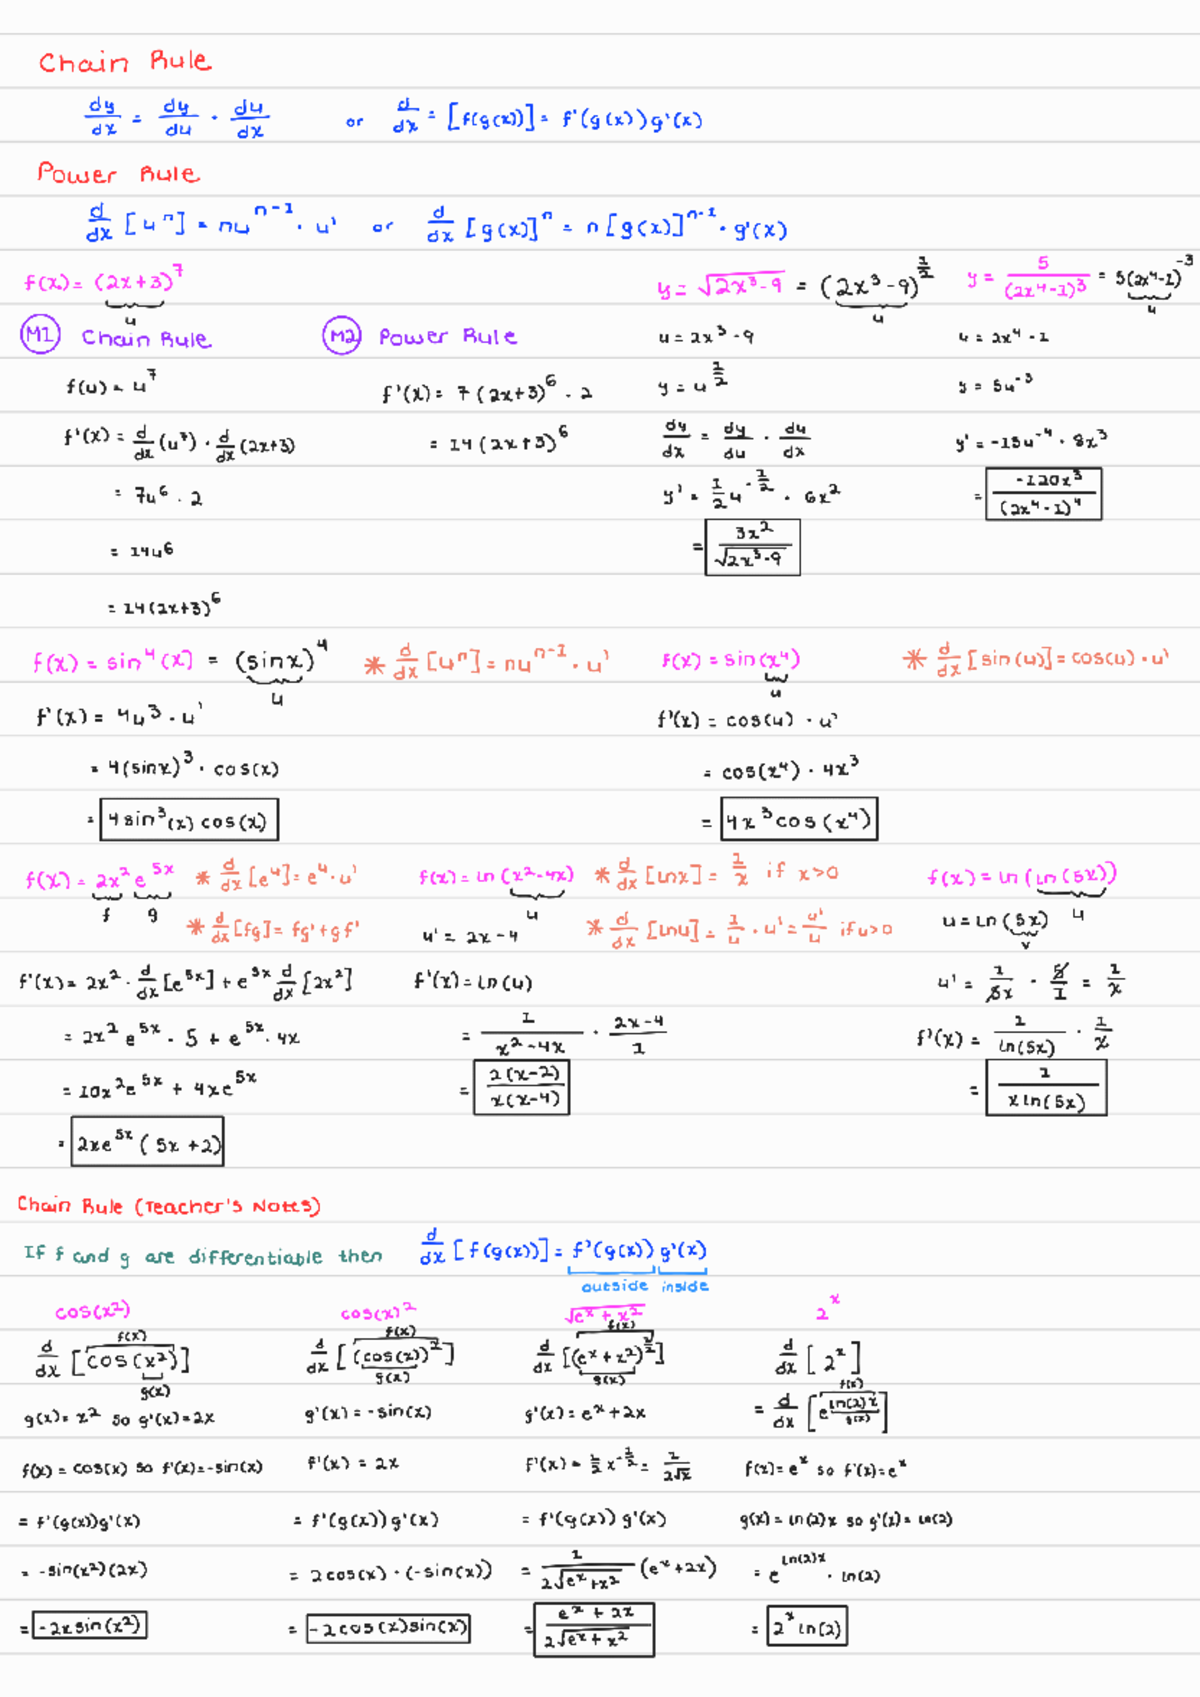 Chain Rule
dy/dx = dy/du · du/dx or d/dx = [f(g(x))] = f'(g(x))g'(x)
Power Rule
d/dx [u^n] = nu^(n-1) · u' or d/dx [g(x)]^n = n[g(x)]^(n-1) · g'(x)
f(x) = (2x+3)^7
u
M1 Chain Rule
f(u) = u^7
f'(x) = d/dx (u^7) · d/dx (2x+3)
= 7u^6 · 2
= 14u^6
= 14(2x+3)^6
M2 Power Rule
f'(x) = 7(2x+3)^6 · 2
= 14(2x+3)^6
y = √(2x^3-9) = (2x^3-9)^(1/2)
u
u = 2x^3-9
y = u^(1/2)
dy/dx = dy/du · du/dx
y' = 1/2 u^(-1/2) · 6x^2
= 3x^2/√(2x^3-9)
y = 5/(2x^4-1)^3 = 5(2x^4-1)^-3
u
u = 2x^4-1
y = 5u^-3
y' = -15u^-4 · 8x^3
= -120x^3/(2x^4-1)^4
f(x) = sin^4(x) = (sinx)^4
u
* d/dx [u^n] = nu^(n-1) · u'
f'(x) = 4u^3 · u'
= 4(sinx)^3 · cos(x)
= 4sin^3(x)cos(x)
f(x) = sin(x^4)
u
* d/dx [sin(u)] = cos(u) · u'
f'(x) = cos(u) · u'
= cos(x^4) · 4x^3
= 4x^3cos(x^4)
f(x) = 2x^2 e^5x
f g
* d/dx [e^u] = e^u · u'
* d/dx [fg] = fg' + gf'
f'(x) = 2x^2 · d/dx [e^5x] + e^5x d/dx [2x^2]
= 2x^2 e^5x · 5 + e^5x · 4x
= 10x^2e^5x + 4xe^5x
= 2xe^5x(5x+2)
f(x) = ln(x^2-4x)
u
* d/dx [lnx] = 1/x if x>0
* d/dx [lnu] = 1/u · u' = u'/u if u>0
u' = 2x-4
f'(x) = ln(u)
= 1/(x^2-4x) · (2x-4)/1
= 2(x-2)/x(x-4)
f(x) = ln(ln(5x))
u
u = ln(5x)
v
u' = 1/5x · 5/1 = 1/x
f'(x) = 1/ln(5x) · 1/x
= 1/xln(5x)
Chain Rule (Teacher's Notes)
If f and g are differentiable then d/dx [f(g(x))] = f'(g(x))g'(x)
outside inside
cos(x^2)
f(x)
d/dx [cos(x^2)]
g(x)
g(x) = x^2 so g'(x) = 2x
f(x) = cos(x) so f'(x) = -sin(x)
= f'(g(x))g'(x)
= -sin(x^2)(2x)
= -2xsin(x^2)
cos(x)^2
f(x)
d/dx [(cos(x))^2]
g(x)
g'(x) = -sin(x)
f'(x) = 2x
= f'(g(x))g'(x)
= 2cos(x) · (-sin(x))
= -2cos(x)sin(x)
√(e^x + x^2)
f(x)
d/dx [(e^x + x^2)^(1/2)]
g(x)
g'(x) = e^x + 2x
f'(x) = 1/2 x^(-1/2) = 1/2√x
= f'(g(x))g'(x)
= 1/2√(e^x + x^2) (e^x + 2x)
= (e^x + 2x)/2√(e^x + x^2)
2^x
d/dx [2^x]
f(x)
= d/dx [e^(ln(2)x)]
g(x)
f(x) = e^x so f'(x) = e^x
g(x) = ln(2)x so g'(x) = ln(2)
= e^(ln(2)x) · ln(2)
= 2^x ln(2)